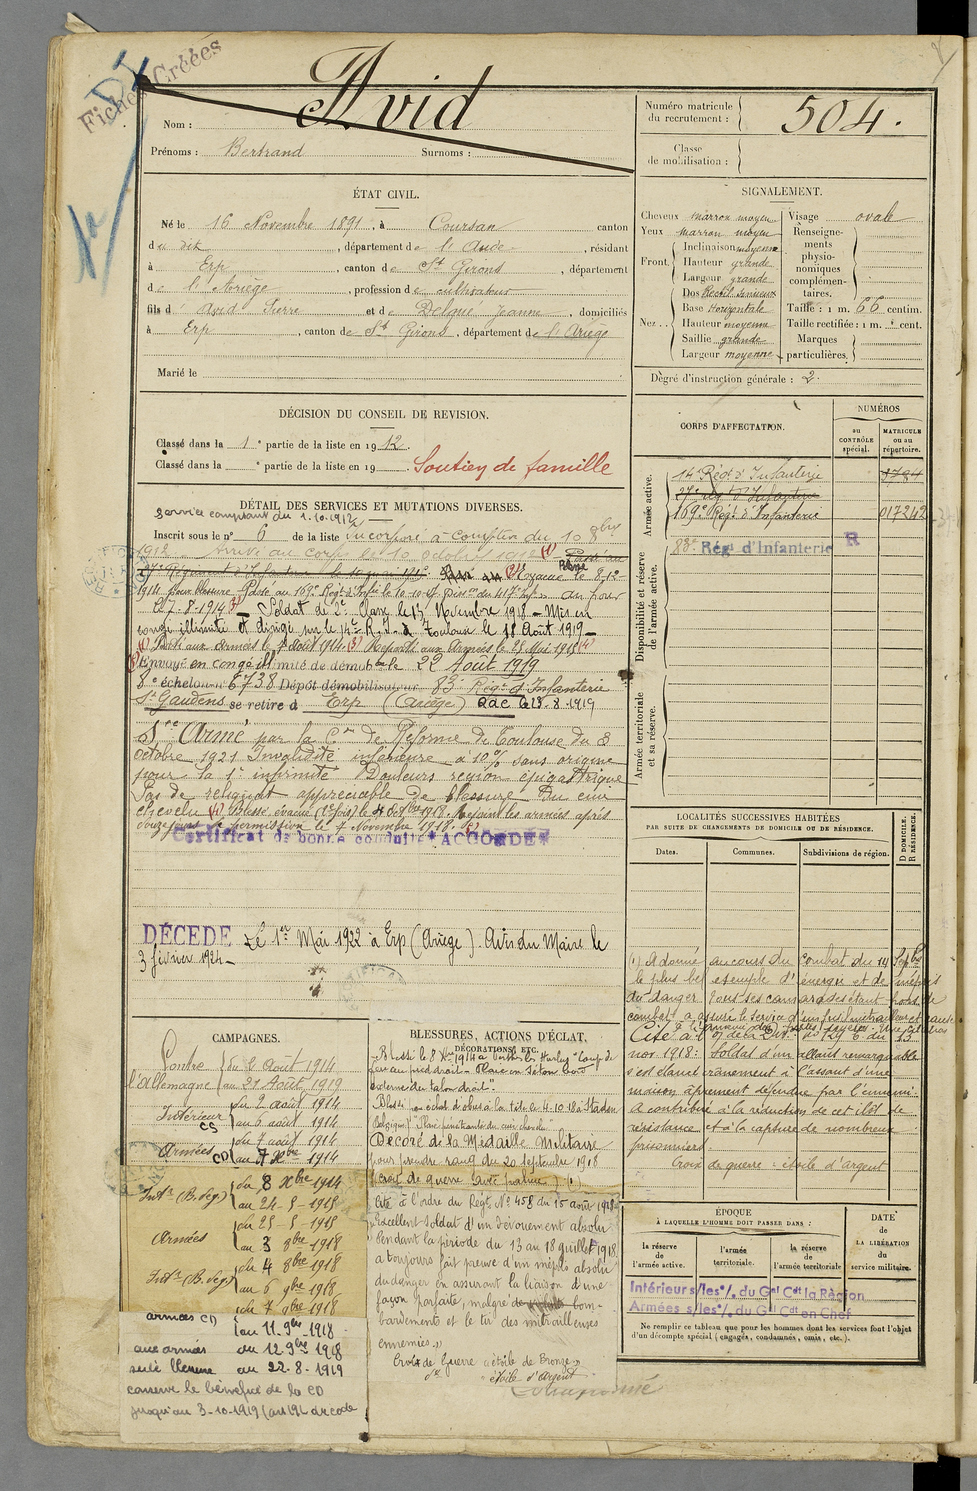 Fiches Créées
Nom : Avid
Prénoms : Bertrand Surnoms :
Numéro matricule du recrutement : 504.
Classe de mobilisation :
ÉTAT CIVIL.
Né le 16 Novembre 1891, à Coursan canton
du dit, département de l'Aude, résidant
à Erp, canton de St Girons, département
de l'Ariège, profession de cultivateur
fils d' Avid Pierre et de Delque Jeanne, domiciliés
à Erp, canton de St Girons, département de l'Ariège
Marié le
SIGNALEMENT.
Cheveux marron moyen
Yeux marron moyen
Front. Inclinaison moyenne
Hauteur grande
Largeur grande
Nez . . Dos Rectil. sinueux
Base Horizontale
Hauteur moyenne
Saillie grande
Largeur moyenne
Visage ovale
Renseignements physionomiques complémentaires.
Taille : 1 m. 66 centim.
Taille rectifiée : 1 m. cent.
Marques particulières.
Dègré d'instruction générale : 2.
DÉCISION DU CONSEIL DE REVISION.
Classé dans la 1e partie de la liste en 1912.
Classé dans la e partie de la liste en 19 Soutien de famille
CORPS D'AFFECTATION.
NUMÉROS
au CONTRÔLE spécial.
MATRICULE ou au répertoire.
Armée active.
14e Régt d'Infanterie
27e rég d'Infanterie
169e Régt d'Infanterie 017242
Disponibilité et réserve de l'armée active.
83e Rég. d'Infanterie R
Armée territoriale et sa réserve.
DÉTAIL DES SERVICES ET MUTATIONS DIVERSES.
service comptant du 1.10.1912
Inscrit sous le n° 6 de la liste incorporé à compter du 10 8bre
1912. Arrivé au corps le 10 octobre 1912 (1) Passé au
27e Régiment d'Infanterie le 10 mai 1915. (2) Evacué le 8-12-
1914 pour blessure. Passé au 169e Régt d'Infie le 10-10-15
le 7-8-1914 (3) Soldat de 2e Classe le 13 Novembre 1918 - Mis en
congé illimité et dirigé sur le 14e R.I. à Toulouse le 18 Août 1919 -
(1) Parti aux armées le 7 août 1914. (3) Reparti aux Armées le 25 Mai 1915 (4)
Envoyé en congé illimité de démob le 22 Août 1919
8e échelon n° 6738 Dépôt démobilisateur 83e Rég. d'Infanterie
St Gaudens se retire à Erp (Ariège) Dac le 23-8-1919
Réformé par la Con de Réforme de Toulouse du 3
octobre 1921 Invalidité inférieure à 10% sans origine
pour la 1e infirmité Douleurs région épigastrique
Pas de reliquat appréciable de blessure du cuir
chevelu (4) Blessé, évacué (2e fois) le 4 8bre 1918. Rejoint les armées après
douze jours de permission le 7 Novembre 1918.
Certificat de bonne conduite ACCORDÉ
DÉCEDÉ Le 1er Mai 1922 à Erp (Ariège). Avis du Maire le
3 février 1924 -
LOCALITÉS SUCCESSIVES HABITÉES
PAR SUITE DE CHANGEMENTS DE DOMICILE OU DE RÉSIDENCE.
Dates. Communes. Subdivisions de région. D DOMICILE. R RÉSIDENCE.
(1) A donné au cours du combat du 14 Septbre
le plus bel exemple d'énergie et de mépris
du danger. Tous ses camarades étant hors de
combat a assuré le service d'un fusil mitrailleur
Cité à l'O/ de la Div. n° 129 E du 13
nov 1918: Soldat d'un allant remarquable
s'est élancé crânement à l'assaut d'une
maison âprement défendue par l'ennemi.
A contribué à la réduction de cet îlot de
résistance et à la capture de nombreux
prisonniers.
Croix de guerre : étoile d'argent
CAMPAGNES.
Contre l'Allemagne du 2 août 1914
au 21 Août 1919
Intérieur CS du 2 août 1914
au 6 août 1914
Armées CD du 7 août 1914
au 7 Xbre 1914
Intr (B. de g.) du 8 Xbre 1914
au 24-5-1915
Armées du 25-5-1915
au 3 8bre 1918
Intr (B. de g.) du 4 8bre 1918
au 6 9bre 1918
armées CD du 7 9bre 1918
au 11-9bre-1918
aux armées du 12-9bre 1918
au 22-8-1919
conserve le bénéfice de la CD
jusqu'au 3-10-1919
BLESSURES, ACTIONS D'ÉCLAT, DÉCORATIONS, ETC.
Blessé le 8 Xbre 1914 à "Coup de
feu au pied droit - Plaie en séton bord
externe du talon droit".
Blessé par éclat d'obus à la tête le 4-10-18 à Staden
(Belgique) "Plaie pénétrante du cuir chevelu".
Décoré de la Médaille Militaire
pour prendre rang du 20 Septembre 1918
(croix de guerre avec palme) (1)
Cité à l'ordre du Régt N° 458 du 15 août 1918
"Excellent soldat d'un dévouement absolu
Pendant la période du 13 au 18 juillet 1918,
a toujours fait preuve d'un mépris absolu
du danger en assurant la liaison d'une
façon parfaite, malgré de bom-
bardements et le tir des mitrailleuses
ennemies."
Croix de Guerre "étoile de Bronze"
étoile d'argent
ÉPOQUE
À LAQUELLE L'HOMME DOIT PASSER DANS :
la réserve de l'armée active.
l'armée territoriale.
la réserve de l'armée territoriale
DATE de LA LIBÉRATION du service militaire.
Intérieur s/les o/. du Gal Cdt la Région
Armées s/les o/. du Gal Cdt en Chef
Ne remplir ce tableau que pour les hommes dont les services font l'objet
d'un décompte spécial (engagés, condamnés, omis, etc.).